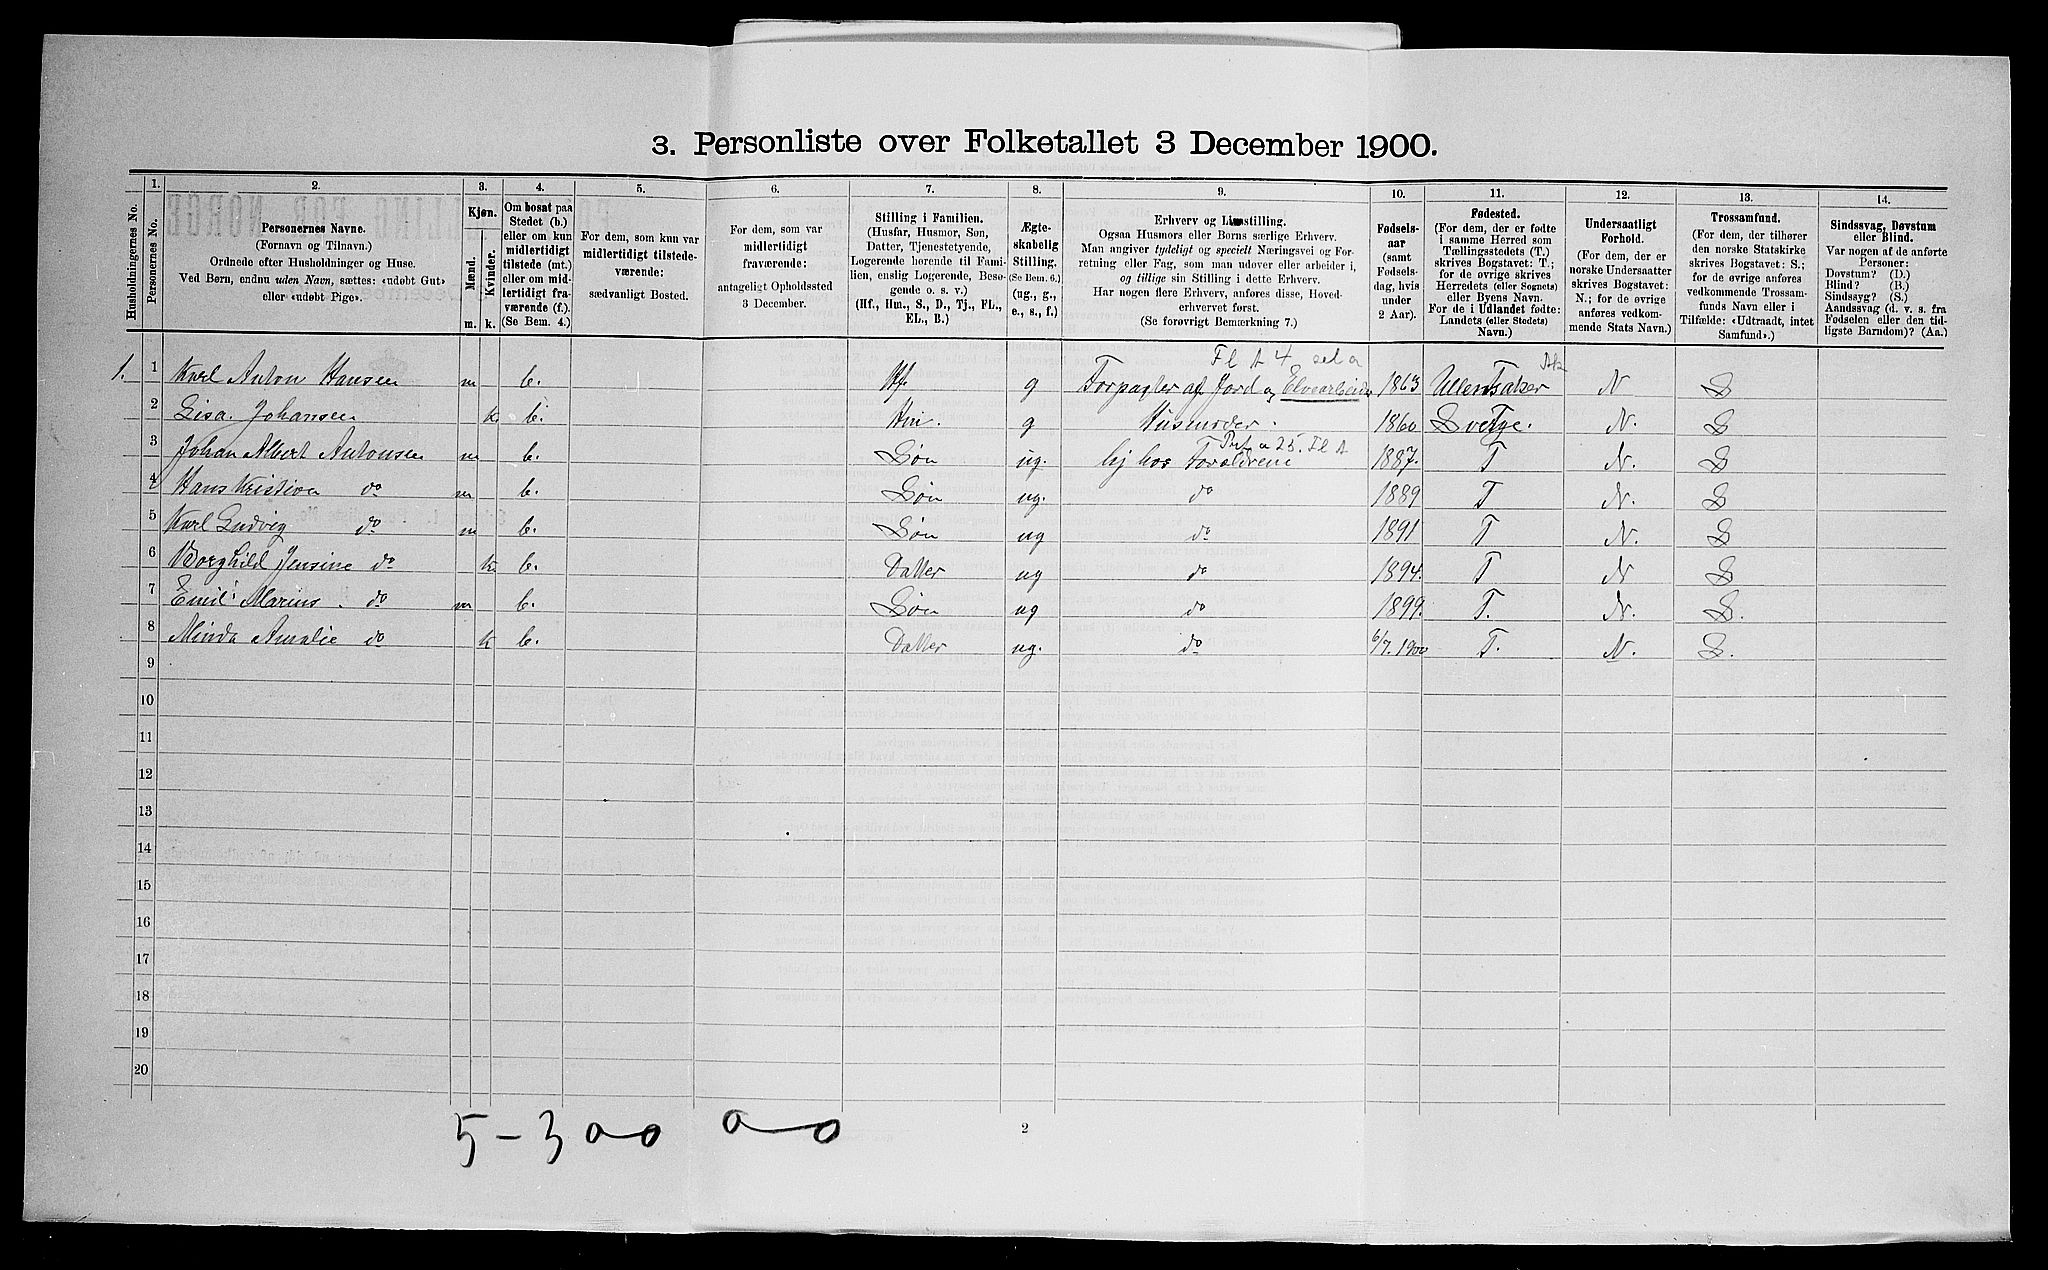 3. Personliste over Folketallet 3 December 1900.
Husholdningernes No.
1.
Personernes No.
2.
Personernes Navne.
(Fornavn og Tilnavn.)
Ordnede efter Husholdninger og Huse.
Ved Børn, endnu uden Navn, sættes: «udøbt Gut»
eller «udøbt Pige».
3.
Kjøn.
Mænd.
Kvinder.
m. k.
4.
Om bosat paa
Stedet (b.)
eller om kun
midlertidigt
tilstede (mt.)
eller om mid-
lertidigt fra-
værende (f.).
(Se Bem. 4.)
5.
For dem, som kun var
midlertidigt tilstede-
værende:
sædvanligt Bosted.
6.
For dem, som var
midlertidigt
fraværende:
antageligt Opholdssted
3 December.
7.
Stilling i Familien.
(Husfar, Husmor, Søn,
Datter, Tjenestetyende,
Logerende hørende til Fami-
lien, enslig Logerende, Besø-
gende o. s. v.)
(Hf., Hm., S., D., Tj., FL.,
EL., B.)
8.
Ægte-
skabelig
Stilling.
(Se Bem. 6.)
(ug., g.,
e., s., f.)
9.
Erhverv og Livsstilling.
Ogsaa Husmors eller Børns særlige Erhverv.
Man angiver tydeligt og specielt Næringsvei og For-
retning eller Fag, som man udøver eller arbeider i,
og tillige sin Stilling i dette Erhverv.
Har nogen flere Erhverv, anføres disse, Hoved-
erhvervet først.
(Se forøvrigt Bemærkning 7.)
10.
Fødsels-
aar
(samt
Fødsels-
dag, hvis
under
2 Aar).
11.
Fødested.
(For dem, der er fødte
i samme Herred som
Tællingsstedets (T.)
skrives Bogstavet: T.;
for de øvrige skrives
Herredets (eller Sognets)
eller Byens Navn.
For de i Udlandet fødte:
Landets (eller Stedets)
Navn.)
12.
Undersaatligt
Forhold.
(For dem, der er
norske Undersaatter
skrives Bogstavet:
N.; for de øvrige
anføres vedkom-
mende Stats Navn.)
13.
Trossamfund.
(For dem, der tilhører
den norske Statskirke
skrives Bogstavet: S.;
for de øvrige anføres
vedkommende Trossam-
funds Navn eller i
Tilfælde: «Udtraadt, intet
Samfund».)
14.
Sindssvag, Døvstum
eller Blind.
Var nogen af de anførte
Personer:
Døvstum? (D.)
Blind? (B.)
Sindssyg? (S.)
Aandssvag (d. v. s. fra
Fødselen eller den tid-
ligste Barndom)? (Aa.)
Fl A 4
1. 1 Karl Anton Hansen m b. Hf. g Forpagter af Jord og Elvearbeider 1863 Ullensaker N S
2 Lisa Johansen k b. Hm. g Husmoder. 1860 Sverge. N. S
3 Johan Albert Antonsen m b. Søn ug. hj hos Forældrene 1887. T N. S
4 Hans Kristian do m b. Søn ug. do 1889 T N. S
5 Karl Ludvig do m b. Søn ug do 1891 T N. S
6 Borghild Jensine do k b. Datter ug do 1894. T N S
7 Emil Marius. do m b. Søn ug do 1899. T. N. S.
8 Minda Amalie do k b. Datter ug. do 6/7.1900 T. N. S.
9
10
11
12
13
14
15
16
17
18
19
20
5-3 00 0 0
2